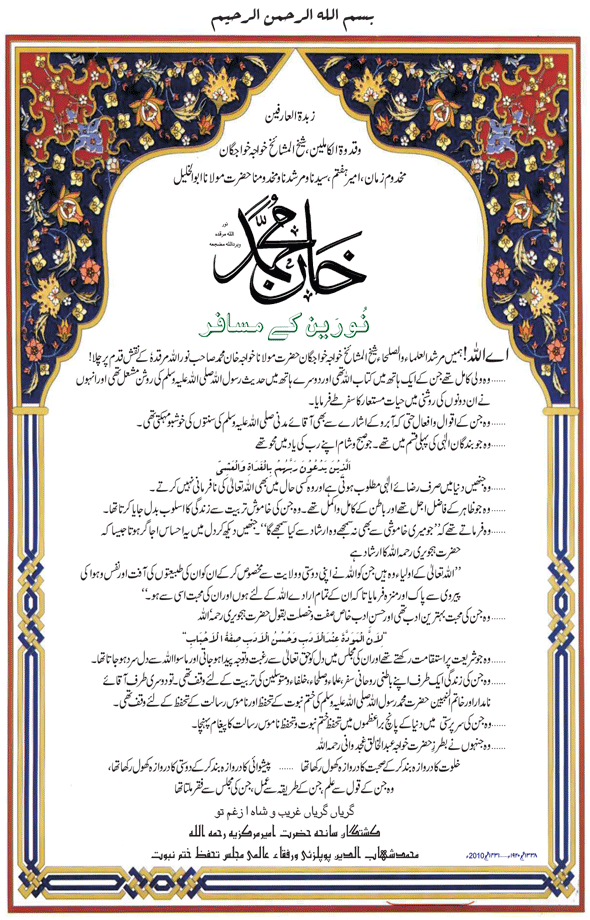 بسم الله الرحمن الرحيم
زبدۃ العارفین
وقدوۃ الکاملین، شیخ المشائخ خواجہ خواجگان
مخدوم زمان، امیر ہفتم، سیدنا ومرشدنا ومخدومنا حضرت مولانا ابوالخلیل
خان محمد
نور
اللہ مرقدہ
وبرداللہ مضجعہ
نُورَین کے مسافر
اے اللہ! ہمیں مرشد العلماء والصلحاء شیخ المشائخ خواجہ خواجگان حضرت مولانا خواجہ خان محمد صاحب نور اللہ مرقدہ کے نقش قدم پر چلا!
......وہ ولی کامل تھے جن کے ایک ہاتھ میں کتاب اللہ تھی اور دوسرے ہاتھ میں حدیث رسول اللہ صلی اللہ علیہ وسلم کی روشن مشعل تھی اور انہوں
نے ان دونوں کی روشنی میں حیات مستعار کا سفر طے فرمایا۔
......وہ جن کے اقوال وافعال حتی کہ آبرو کے اشارے سے بھی آقائے مدنی صلی اللہ علیہ وسلم کی سنتوں کی خوشبو مہکتی تھی۔
......وہ جو بندگان الٰہی کی پہلی قسم میں تھے۔ جو صبح وشام اپنے رب کی یاد میں محو تھے
الَّذِيْنَ يَدْعُوْنَ رَبَّهُمْ بِالْغَدَاةِ وَالْعَشِيِّ
......وہ جنھیں دنیا میں صرف رضائے الٰہی مطلوب ہوتی ہے اور وہ کسی حال میں بھی اللہ تعالیٰ کی نافرمانی نہیں کرتے۔
......وہ جو ظاہر کے فاضل اجل تھے اور باطن کے کامل واکمل تھے۔ وہ جن کی خاموش تربیت سے زندگی کا اسلوب بدل جایا کرتا تھا۔
......وہ فرماتے تھے کہ "جو میری خاموشی سے بھی نہ سمجھے وہ ارشاد سے کیا سمجھے گا"۔ جنھیں دیکھ کر دل میں یہ احساس اجاگر ہوتا جیسا کہ
حضرت ہجویری رحمہ اللہ کا ارشاد ہے
"اللہ تعالیٰ کے اولیاء وہ ہیں جن کو اللہ نے اپنی دوستی وولایت سے مخصوص کر کے ان کو ان کی طبیعتوں کی آفت اور نفس وہوا کی
پیروی سے پاک اور منزہ فرمایا تاکہ ان کے تمام ارادے اللہ کے لئے ہوں اور ان کی محبت اسی سے ہو۔"
......وہ جن کی محبت بہترین ادب تھی اور حسن ادب خاص صفت وخصلت بقول حضرت ہجویری رحمہ اللہ
"لِاَنَّ الْمَوَدَّةَ عِنْدَ الْاَدَبِ وَحُسْنُ الْاَدَبِ صِفَةُ الْاَحْبَابِ"
......وہ جو شریعت پر استقامت رکھتے تھے اور ان کی مجلس میں دل کو حق تعالیٰ سے رغبت وتوجہ پیدا ہوجاتی اور ماسوا اللہ سے دل سرد ہوجاتا تھا۔
......وہ جن کی زندگی ایک طرف اپنے باطنی روحانی سفر، علماء وصلحاء، خلفاء ومتوسلین کی تربیت کے لئے وقف تھی۔ تو دوسری طرف آقائے
نامدار اور خاتم النبیین حضرت محمد رسول اللہ صلی اللہ علیہ وسلم کی ختم نبوت کے تحفظ اور ناموس رسالت کے تحفظ کے لئے وقف تھی۔
......وہ جن کی سرپرستی میں دنیا کے پانچ براعظموں میں تحفظ ختم نبوت وتحفظ ناموس رسالت کا پیغام پہنچا۔
......وہ جنہوں نے بطرز حضرت خواجہ عبدالخالق غجدوانی رحمہ اللہ
خلوت کا دروازہ بند کر کے صحبت کا دروازہ کھول رکھا تھا ...... پیشوائی کا دروازہ بند کر کے دوستی کا دروازہ کھول رکھا تھا،
وہ جن کے قول سے علم، جن کے طریقہ سے عمل، جن کی مجلس سے فقر ملتا تھا
گریاں گریاں غریب و شاہ از غم تو
کشتگان سانحہ حضرت امیر مرکزیہ رحمہ اللہ
محمدشہاب الدین پوپلزئی ورفقاء عالمی مجلس تحفظ ختم نبوت
2010ء